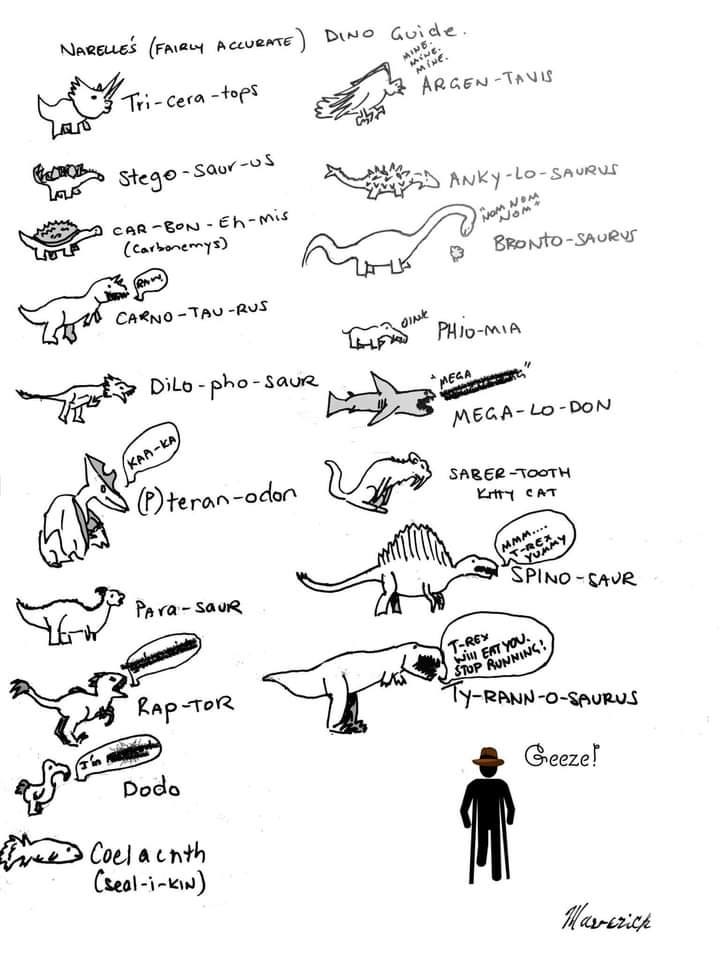 NARELLE'S (FAIRLY ACCURATE) DINO Guide.
Tri-cera-tops
Stego-Saur-us
CAR-BON-Eh-mis
(Carbonemys)
RAW
CARNO-TAU-RUS
DiLo-pho-SAUR
KAA-KA
(P)teran-odon
PArA-SAUR
RAP-TOR
I'm
Dodo
Coelacnth
(Seal-i-KIN)
MINE.
MINE.
MINE.
ARGEN-TAVIS
ANKY-LO-SAURUS
"NOM NOM
NOM"
BRONTO-SAURUS
OINK
PHIO-MIA
"MEGA
"
MEGA-LO-DON
SABER-TOOTH
KITTY CAT
MMM....
T-REX
YUMMY
SPINO-SAUR
T-REX
Will EAT YOU.
STOP RUNNING!
TY-RANN-O-SAURUS
Geeze!
Maverick